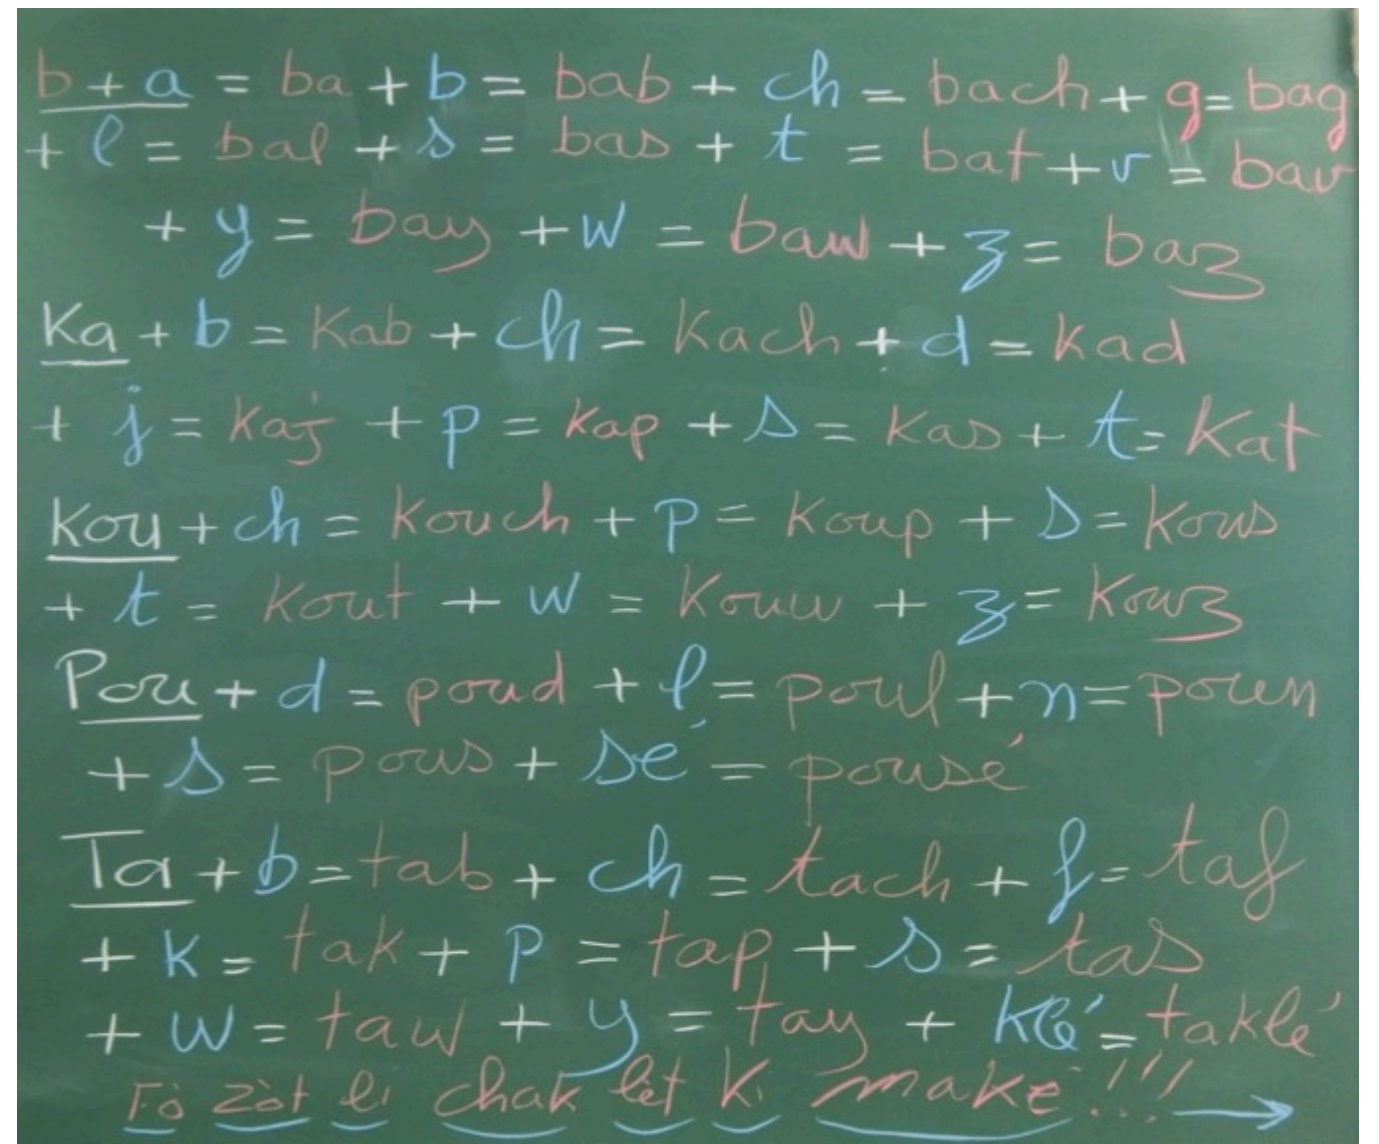 b + a = ba + b = bab + ch = bach + g = bag
+ l = bal + s = bas + t = bat + v = bav
+ y = bay + w = baw + z = baz
Ka + b = Kab + ch = kach + d = kad
+ j = kaj + p = kap + s = kas + t = Kat
Kou + ch = kouch + p = koup + s = kous
+ t = kout + w = kouw + z = kouz
Pou + d = poud + l = poul + n = poun
+ s = pous + sé = pousé
Ta + b = tab + ch = tach + f = taf
+ k = tak + p = tap + s = tas
+ w = taw + y = tay + klé = taklé
Fò zòt li chak lèt ki make !!! →